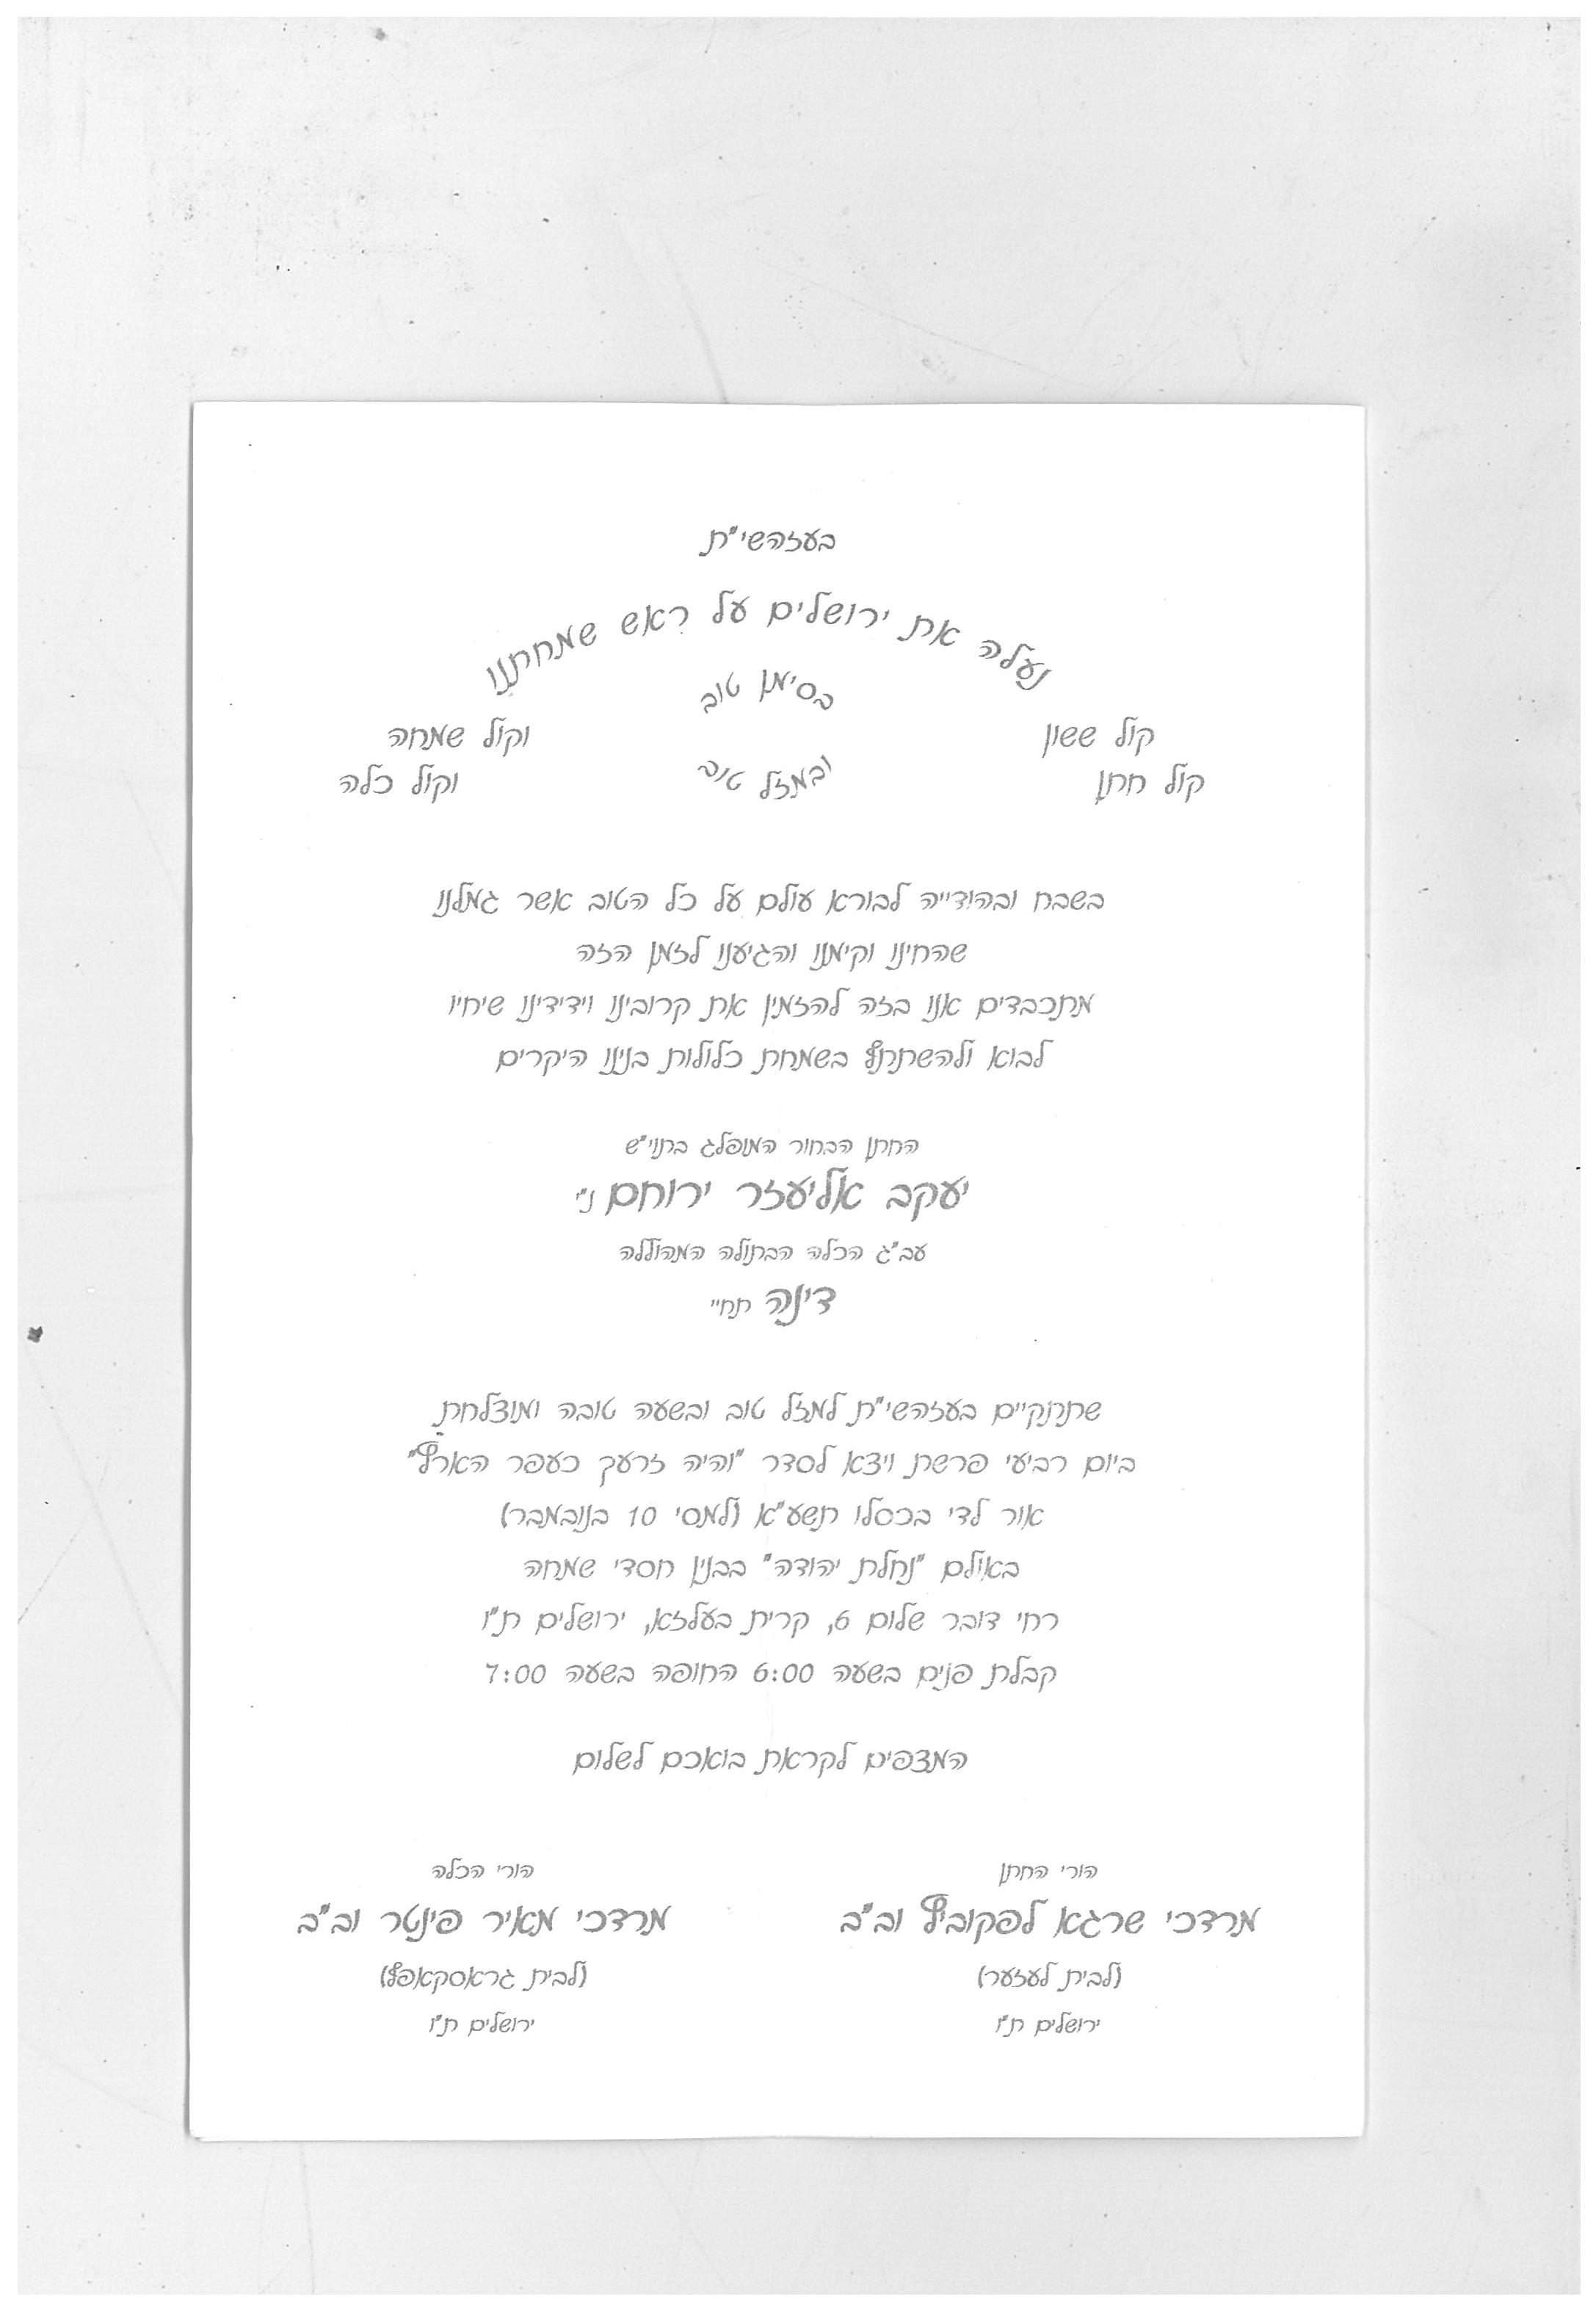 בעזהשי"ת
נעלה את ירושלים על ראש שמחתנו
בסימן טוב
קול ששון
וקול שמחה
ובמזל טוב
קול חתן
וקול כלה
בשבח ובהודייה לבורא עולם על כל הטוב אשר גמלנו
שהחינו וקימנו והגיענו לזמן הזה
מתכבדים אנו בזה להזמין את קרובינו וידידינו שיחיו
לבוא ולהשתתף בשמחת כלולות בנינו היקרים
החתן הבחור המופלג בתוי"ש
יעקב אליעזר ירוחם ני"
עב"ג הכלה הבתולה המהוללה
דינה תחי"
שתתקיים בעזהשי"ת למזל טוב ובשעה טובה ומוצלחת
ביום רביעי פרשת ויצא לסדר "והיה זרעך כעפר הארץ"
אור לדי בכסלו תשע"א (למסי 10 בנובמבר)
באולם "נחלת יהודה" בבנין חסדי שמחה
רחי דובר שלום 6, קרית בעלזא, ירושלים ת"ו
קבלת פנים בשעה 6:00 החופה בשעה 7:00
המצפים לקראת בואכם לשלום
הורי החתן
מרדכי שרגא לפקוביץ וב"ב
(לבית לעזער)
ירושלים ת"ו
הורי הכלה
מרדכי מאיר פינטר וב"ב
(לבית גראסקאפף)
ירושלים ת"ו